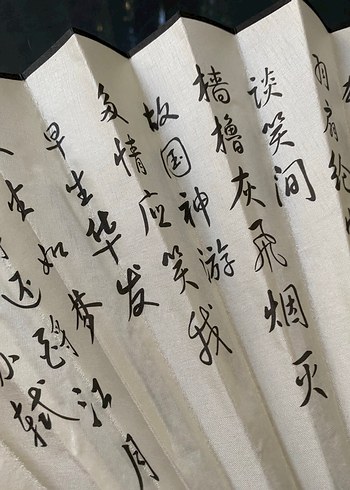 羽扇纶
谈笑间
樯橹灰飞烟灭
故国神游
多情应笑我
早生华发
人生如梦
还酹江月
轼